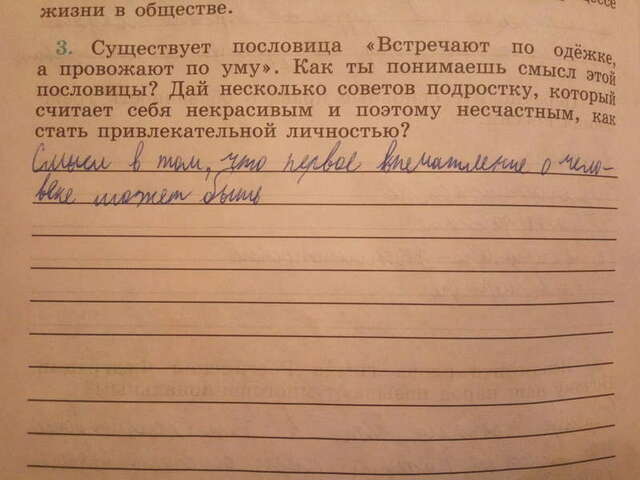 жизни в обществе.
3. Существует пословица «Встречают по одёжке,
а провожают по уму». Как ты понимаешь смысл этой
пословицы? Дай несколько советов подростку, который
считает себя некрасивым и поэтому несчастным, как
стать привлекательной личностью?
Смысл в том, что первое впечатление о чело-
веке может быть